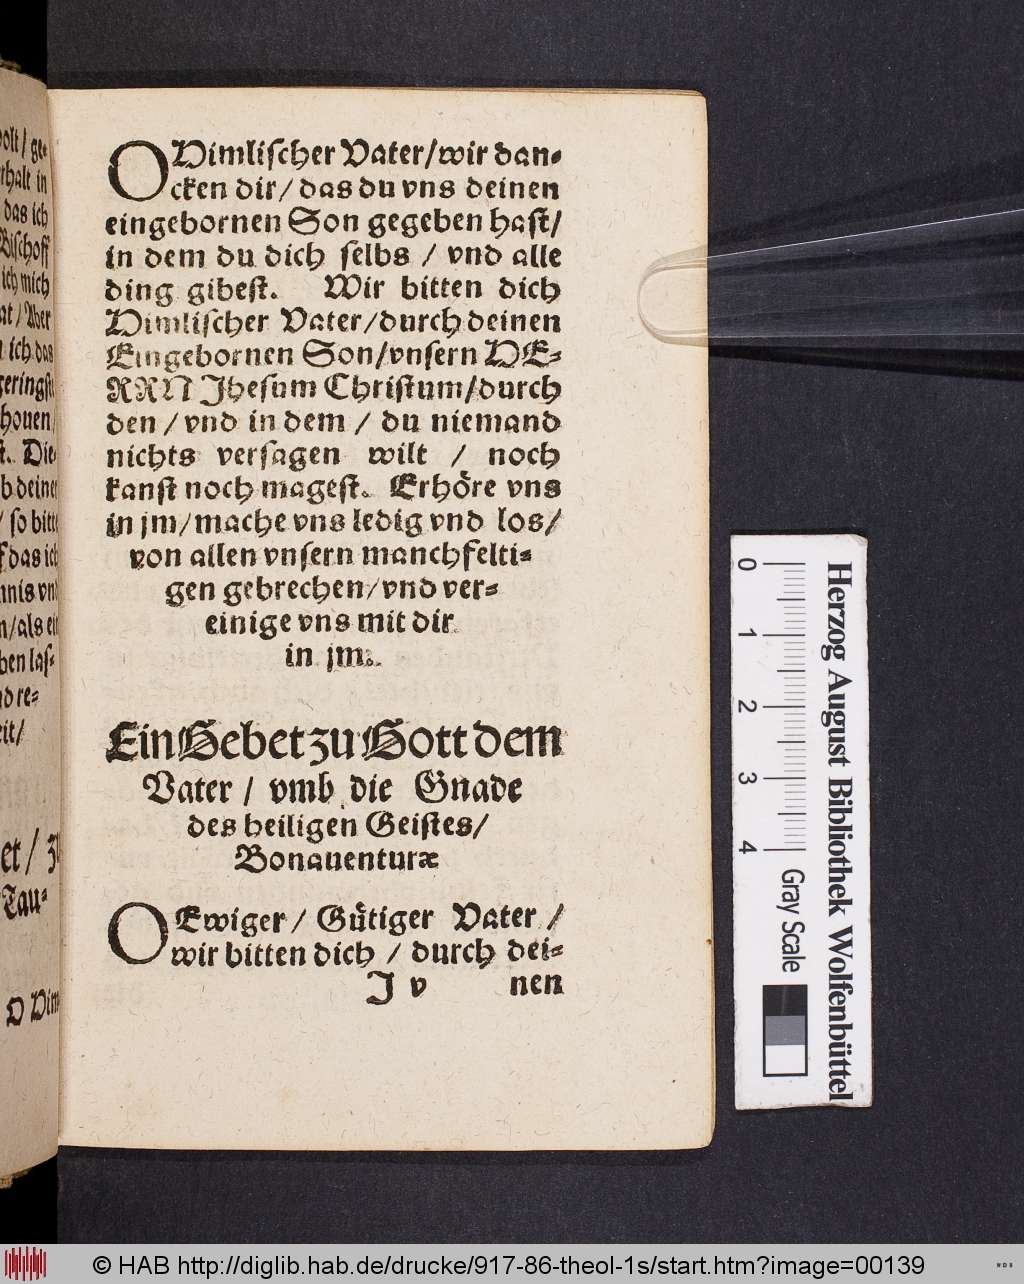 olt / ge-
rhalt in
das ich
Bischoff
ich mich
at / Aber
ich das
geringst
houen /
st. Die
b deiner
/ so bitt
das ich
nnis vnd
n / als ein
ben las-
d re-
eit /
et / zu
Tau-
O Him
O Himlischer Vater/wir dan-
cken dir/ das du vns deinen
eingebornen Son gegeben hast/
in dem du dich selbs / vnd alle
ding gibest. Wir bitten dich
Himlischer Vater/durch deinen
Eingebornen Son/vnsern HE-
RRN Jhesum Christum/durch
den / vnd in dem / du niemand
nichts versagen wilt / noch
kanst noch magest. Erhöre vns
in jm/mache vns ledig vnd los/
von allen vnsern manchfelti-
gen gebrechen/vnd ver-
einige vns mit dir
in jm.
Ein Gebet zu Gott dem
Vater / vmb die Gnade
des heiligen Geistes/
Bonauenturæ
O Ewiger / Gütiger Vater /
wir bitten dich / durch dei-
J v nen
Herzog August Bibliothek Wolfenbüttel
0 1 2 3 4 Gray Scale
© HAB http://diglib.hab.de/drucke/917-86-theol-1s/start.htm?image=00139